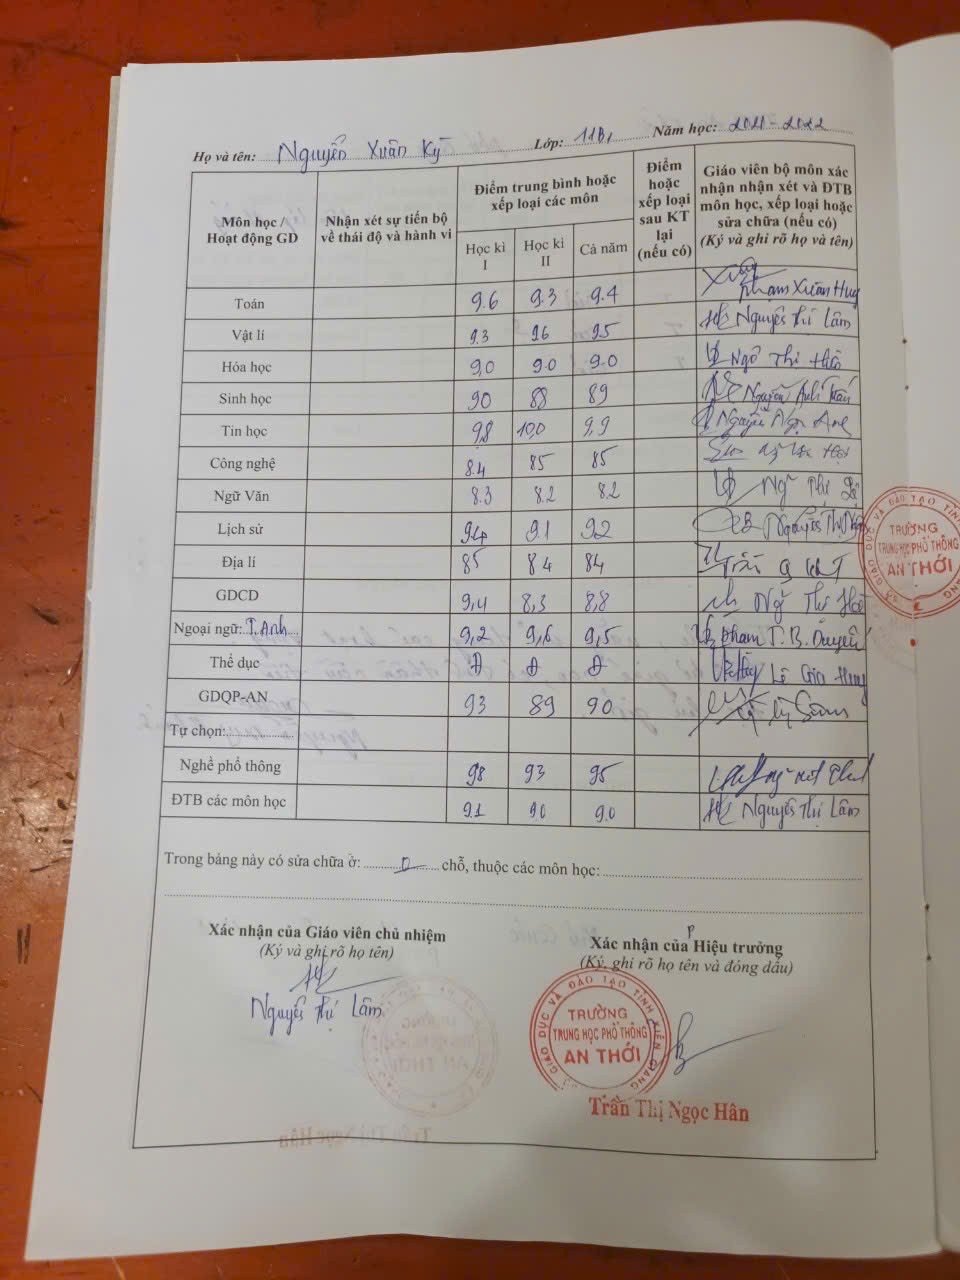 Họ và tên: Nguyễn Xuân Kỳ Lớp: 11B1 Năm học: 2021-2022
Môn học / Hoạt động GD
Nhận xét sự tiến bộ về thái độ và hành vi
Điểm trung bình hoặc xếp loại các môn
Học kì I
Học kì II
Cả năm
Điểm hoặc xếp loại sau KT lại (nếu có)
Giáo viên bộ môn xác nhận nhận xét và ĐTB môn học, xếp loại hoặc sửa chữa (nếu có)
(Ký và ghi rõ họ và tên)
Toán 9.6 9.3 9.4 Phạm Xuân Huy
Vật lí 9.3 9.6 9.5 Nguyễn Thị Lâm
Hóa học 9,0 9.0 9.0 Ngô Thị
Sinh học 90 88 89 Nguyễn Anh
Tin học 9,8 10,0 9,9 Nguyễn Ngọc Anh
Công nghệ 8.4 85 85
Ngữ Văn 8.3 8.2 8.2 Thị
Lịch sử 94 9.1 92 Nguyễn Thị
Địa lí 85 84 84 Trần
GDCD 9,4 8,3 8,8 Ngô Thị
Ngoại ngữ: T.Anh 9,2 9,6 9,5 Phạm T.B. Duyên
Thể dục Đ Đ Đ Lê Gia Hưng
GDQP-AN 93 89 90
Tự chọn:
Nghề phổ thông 98 93 95
ĐTB các môn học 9.1 90 9.0 Nguyễn Thị Lâm
Trong bảng này có sửa chữa ở: 0 chỗ, thuộc các môn học:
Xác nhận của Giáo viên chủ nhiệm
(Ký và ghi rõ họ tên)
Nguyễn Thị Lâm
Xác nhận của P Hiệu trưởng
(Ký, ghi rõ họ tên và đóng dấu)
SỞ GIÁO DỤC VÀ ĐÀO TẠO TỈNH KIÊN GIANG
TRƯỜNG
TRUNG HỌC PHỔ THÔNG
AN THỚI
Trần Thị Ngọc Hân
SỞ GIÁO DỤC VÀ ĐÀO TẠO TỈNH
TRƯỜNG
TRUNG HỌC PHỔ THÔNG
AN THỚI